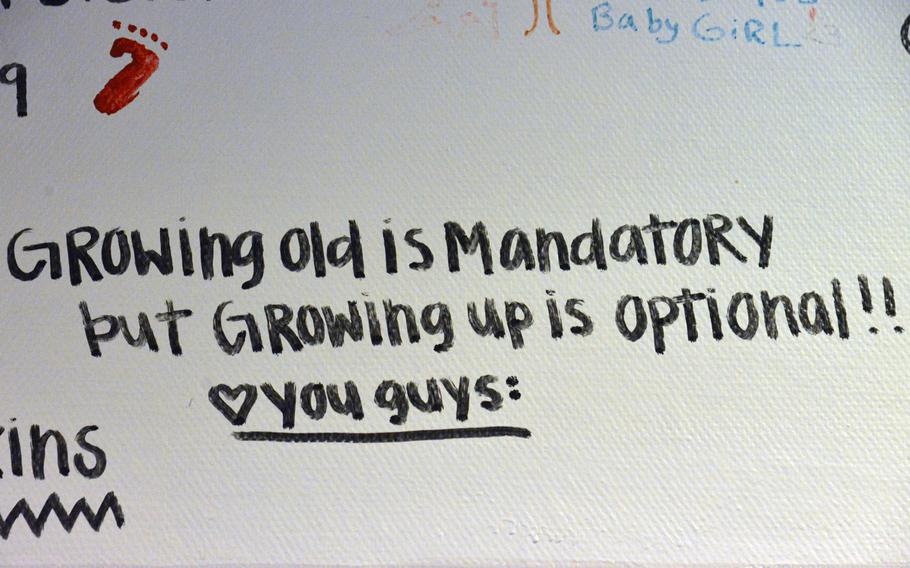 Baby GiRL
9
GROWing old is MandatORY
but GROWing up is optional!!
♡you guys:
ins